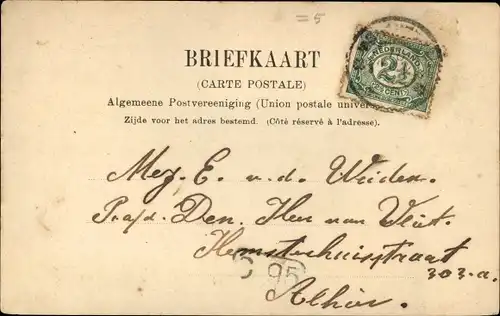 =5
NEDERLAND
2½
CENT
BRIEFKAART
(CARTE POSTALE)
Algemeene Postvereeniging (Union postale univers
Zijde voor het adres bestemd. (Côté réservé à l'adresse).
Mej. E. v. d. Weiden.
P. a/d. Den. Heer van Vliet.
Hemsterhuisstraat
303-a.
95
Alhier.